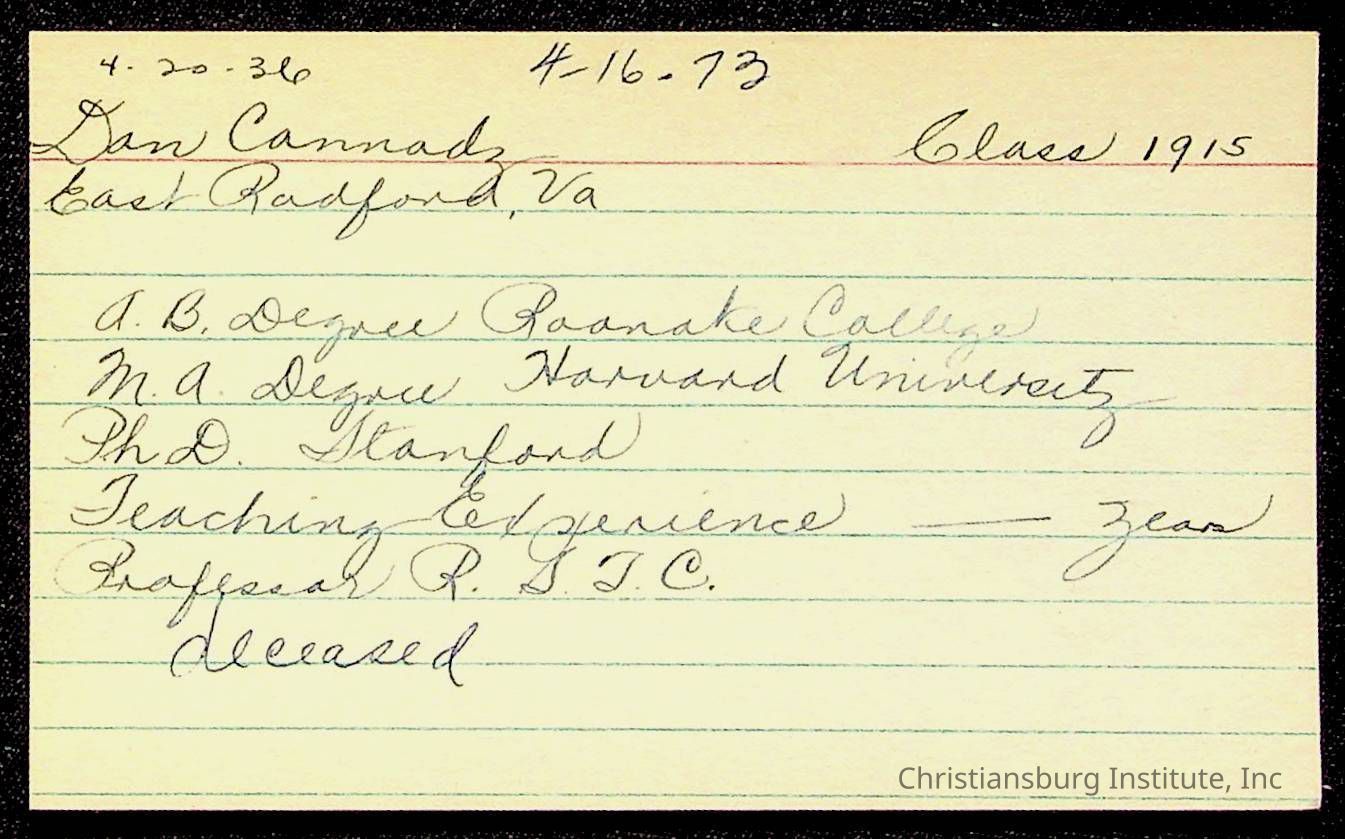 4-20-36 4-16-73
Dan Cannady Class 1915
East Radford, Va
A. B. Degree Roanoke College
M. A. Degree Harvard University
Ph D. Stanford
Teaching Experience — years
Professor R. S. T. C.
deceased
Christiansburg Institute, Inc